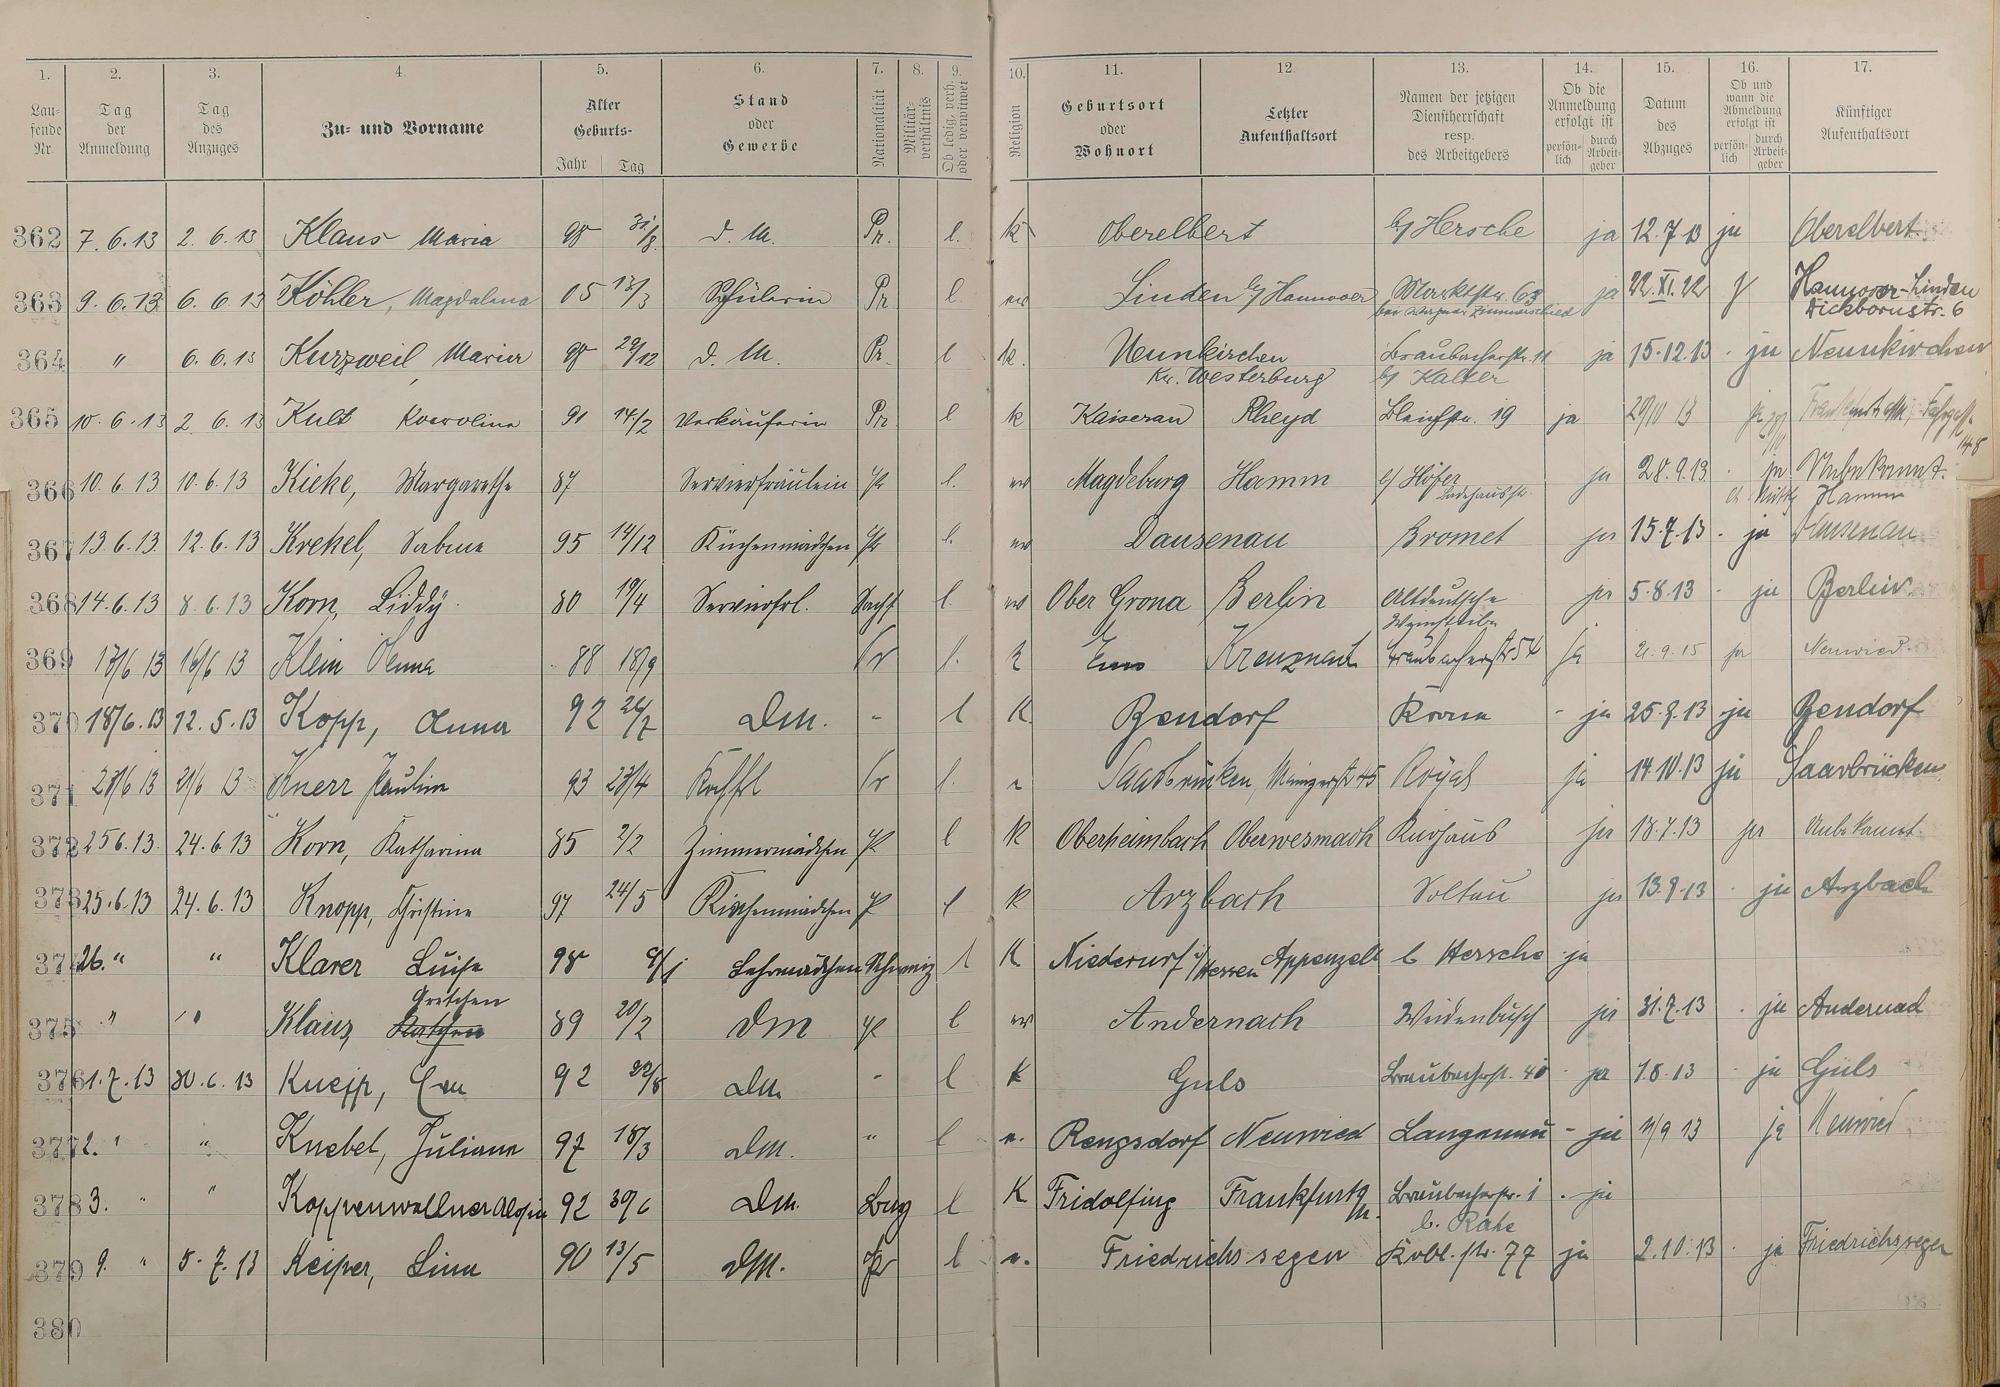 1. 2. 3. 4. 5. 6. 7. 8. 9. 10. 11. 12. 13. 14. 15. 16. 17.
Lau- fende Nr. Tag der Anmeldung Tag des Anzuges Zu- und Vorname Alter Geburts- Jahr Tag Stand oder Gewerbe Nationalität Militär- verhältnis Ob ledig, verh. oder verwitwet Religion Geburtsort oder Wohnort Letzter Aufenthaltsort Namen der jetzigen Dienstherrschaft resp. des Arbeitgebers Ob die Anmeldung erfolgt ist persön- lich durch Arbeit- geber Datum des Abzuges Ob und wann die Abmeldung erfolgt ist persön- lich durch Arbeit- geber Künftiger Aufenthaltsort
362 7.6.13 2.6.13 Klaus Maria 98 31/8 d. M. Pr. l. k Oberelbert b/ Hersche ja 12.7.13 ja Oberelbert
363 9.6.13 6.6.13 Köhler, Magdalena 05 13/3 Schülerin Pr l. ev Linden b/ Hannover Marktstr. 63 ja 22.XI.22 Hannover-Linden
Dickbornstr. 6
364 " 6.6.13 Kurzweil Maria 98 29/12 d. M. Pr. l k. Neunkirchen Braubacherstr. 11 ja 15.12.13 ja Neunkirchen
Kr. Westerburg b/ Kalter
365 10.6.13 2.6.13 Kult Karoline 91 14/2 Verkäuferin Pr l k Kaiserau Rheyd Bleichstr. 19 ja 29/11 13
366 10.6.13 10.6.13 Kieke, Margarethe 87 Servierfräulein Pr l. ev Magdeburg Hamm b/ Höfer ja 28.9.13 ja Unbekannt.
Hamm
367 13.6.13 12.6.13 Krekel, Sabine 95 14/12 Küchenmädchen Pr l. ev Dausenau Bromet ja 15.7.13 ja Dausenau
368 14.6.13 8.6.13 Korn, Liddy 80 19/4 Servierfrl. Sachs l. ev Ober Grona Berlin Altdeutsche ja 5.8.13 ja Berlin
Weinstube
369 17/6 13 16/6 13 Klein Anna 88 18/9 Pr l. k Ems Kreuznach Braubacherstr 54 ja 21.9.15 ja Neuwied
370 18/6.13 12.5.13 Kopp, Anna 92 26/7 Dm. " l K Bendorf Krone - ja 25.9.13 ja Bendorf
371 23/6 13 21/6 13 Knerr Pauline 93 23/4 Pr l. Saarbrücken, Mainzerstr 45 Royal ja 14.10.13 ja Saarbrücken
372 25.6.13 24.6.13 Korn, Katharina 85 2/2 Zimmermädchen Pr l k Oberheimbach Oberwesmach Kurhaus ja 18.7.13 ja Unbekannt
373 25.6.13 24.6.13 Knopp, Christine 97 24/5 Küchenmädchen Pr l k Arzbach Soltau ja 13.9.13 ja Arzbach
374 26. " " Klarer Luise 98 Lehrmädchen Schweiz l K Niederurf i/ Hessen Appenzell b Hersche ja
Gretchen
375 " " Klaus, 89 20/2 Dm Pr l ev Andernach Weidenbusch ja 31.7.13 ja Andernach
376 1.7.13 30.6.13 Kneip, Eva 92 22/8 Dm. - l k Güls Braubacherstr. 40 ja 1.8.13 ja Güls
377 2. " " Knebel, Juliane 97 18/3 Dm. " l e. Rengsdorf Neuwied Langenau - ja 11/9 13 ja Neuwied
378 3. " " Koppenwallner Aloysia 92 30/6 Dm. Bay l K Fridolfing Frankfurt a/M. Braubacherstr. 1 ja
b. Rahe
379 9. " 8.7.13 Keiper, Lina 90 13/5 Dm. Pr l e. Friedrichssegen Kobl. str. 77 ja 2.10.13 ja Friedrichssegen
380